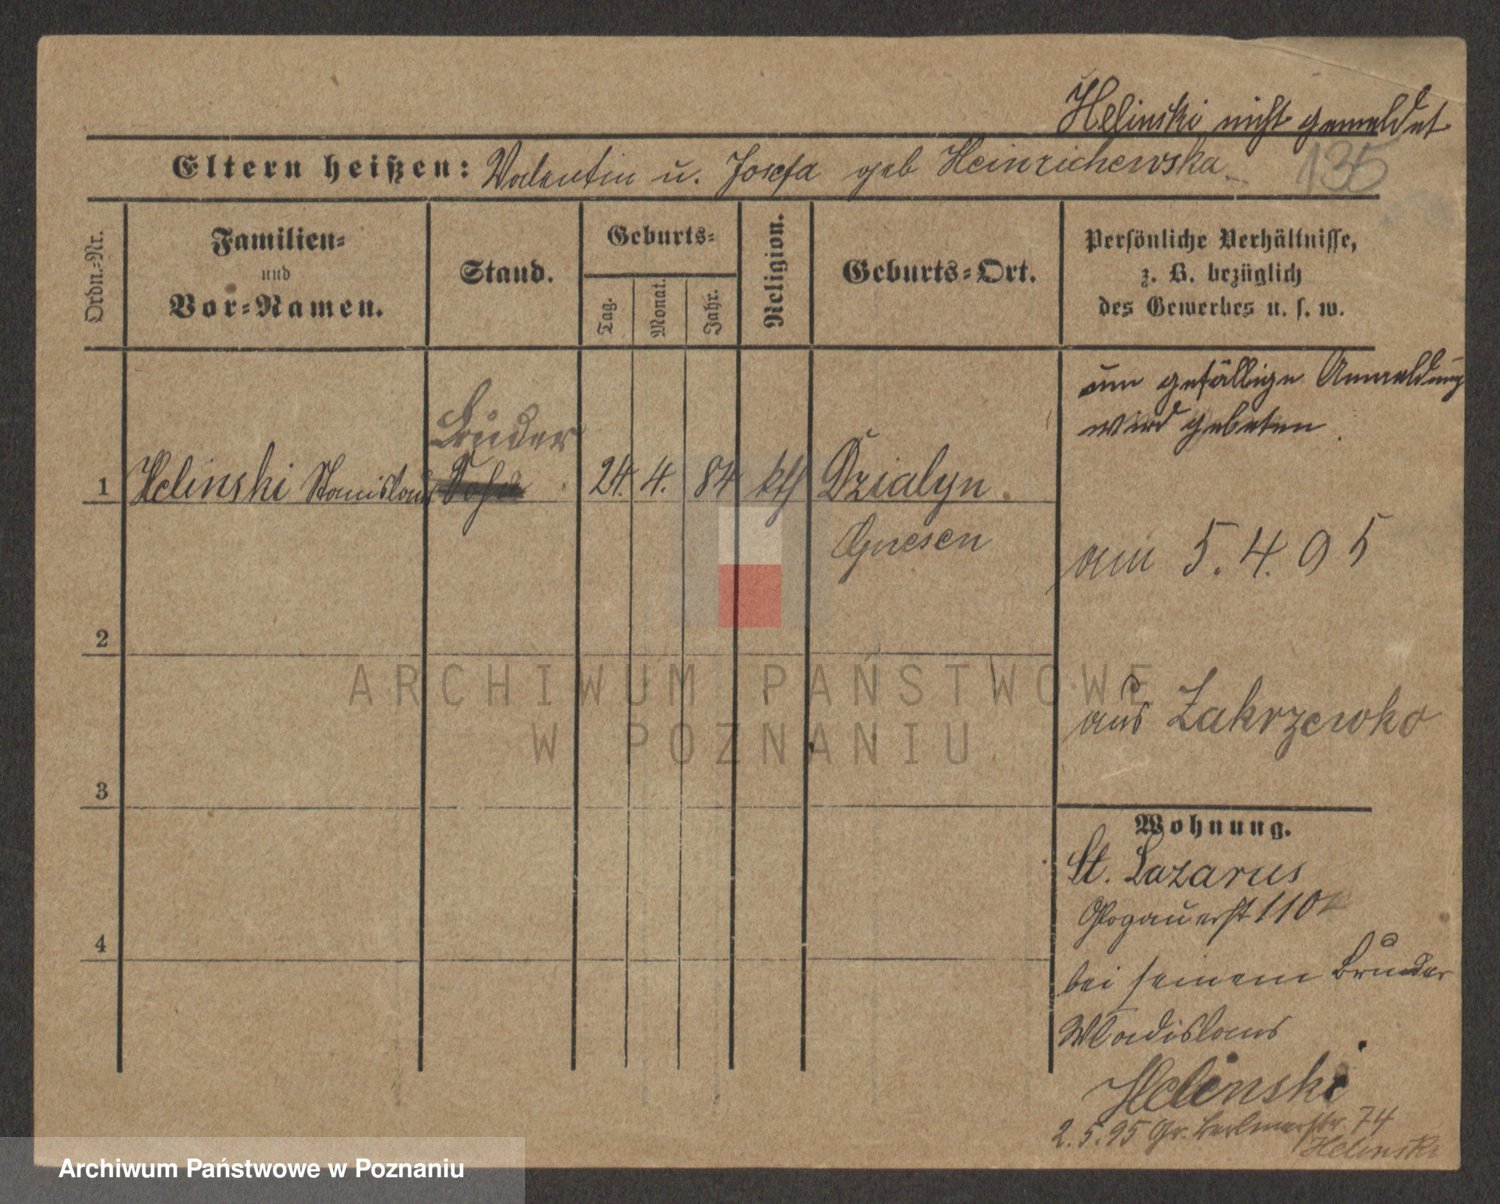 Helinski nicht gemeldet
Eltern heißen: Valentin u. Josefa geb Heinrichewska
135
Ordn.-Nr.
Familien-
und
Vor-Namen.
Stand.
Geburts-
Tag.
Monat.
Jahr.
Religion.
Geburts-Ort.
Persönliche Verhältnisse,
z. B. bezüglich
des Gewerbes u. s. w.
um gefällige Anmeldung
wird gebeten.
Bruder
1 Helinski Stanislaus Sohn 24. 4. 84 kth Dzialyn
Gnesen
am 5.4.95
2
aus Zakrzewko
3
Wohnung.
St. Lazarus
Glogauerst 110
4
bei seinem Bruder
Wladislaus
Helinski
2.5.95 Gr. 74
Helinski
ARCHIWUM PAŃSTWOWE
W POZNANIU
Archiwum Państwowe w Poznaniu